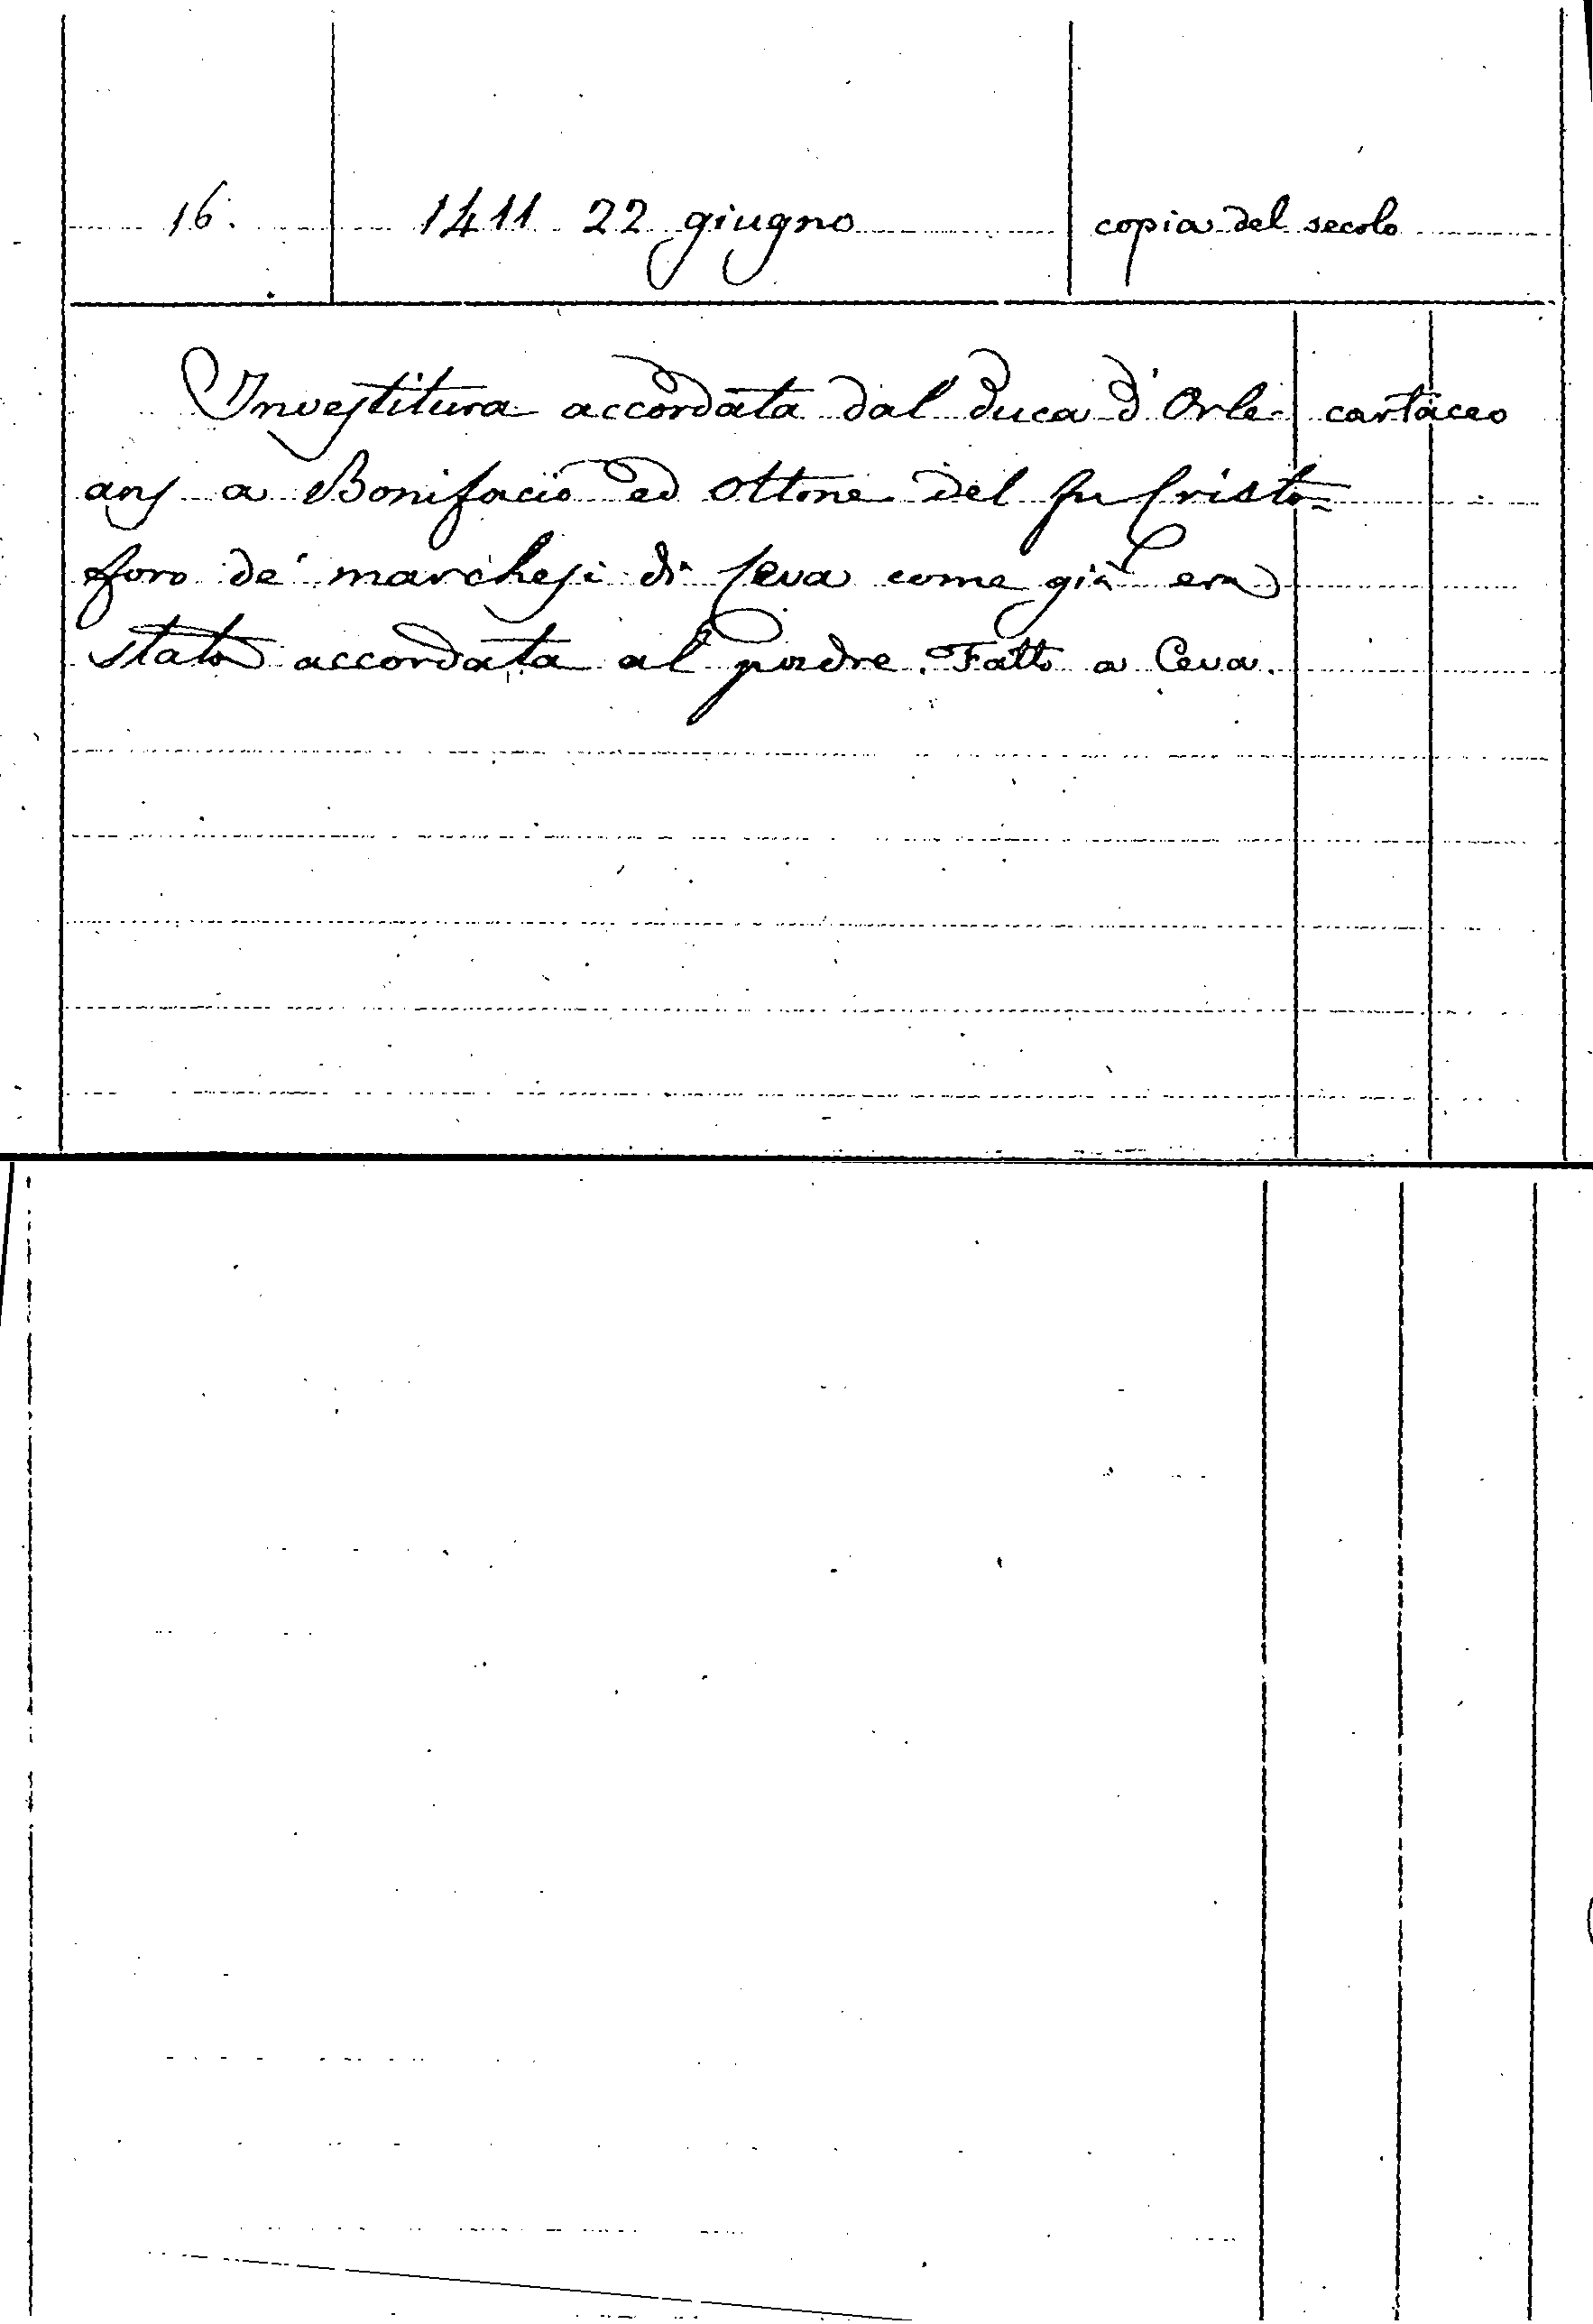 16. 1411 22 giugno copia del secolo
Investitura accordata dal Duca d'Orle- cartaceo
ans a Bonifacio ed Ottone del fu Cristo=
foro de' marchesi di Ceva come già era
stata accordata al padre. Fatto a Ceva.